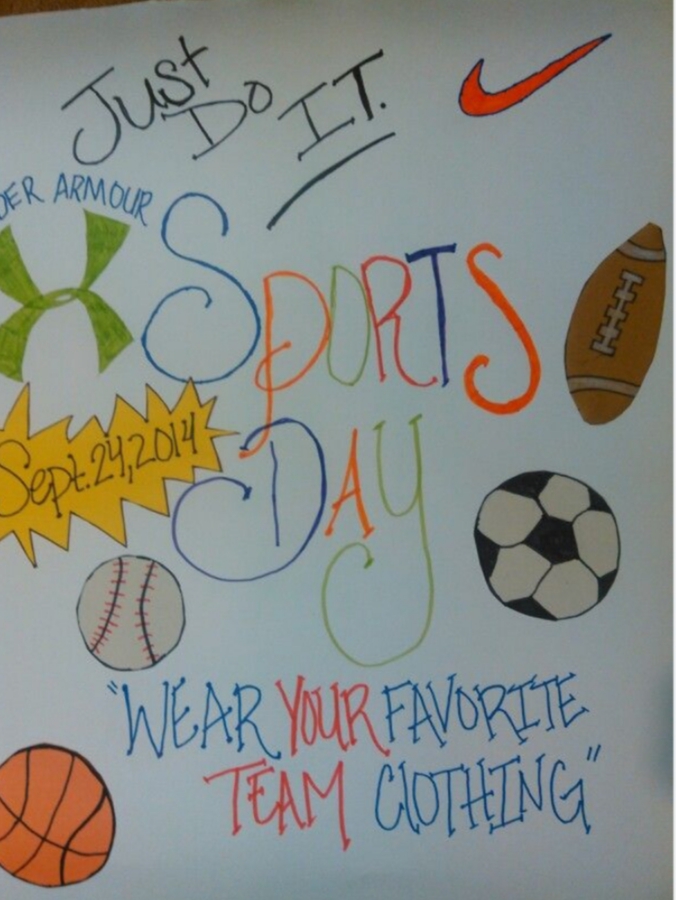 JUST
DO IT.
DER ARMOUR
SPORTS
DAY
Sept. 24, 2014
"WEAR YOUR FAVORITE
TEAM ClOTHING"